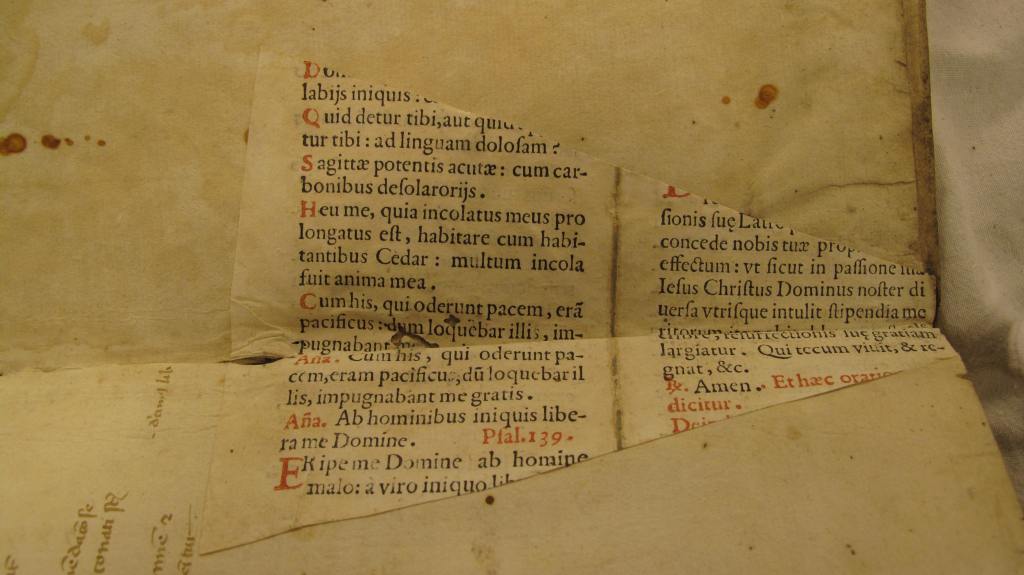 labijs iniquis
Quid detur tibi, aut
tur tibi : ad linguam dolosam ?
Sagittæ potentis acutæ : cum car-
bonibus desolarorijs.
Heu me, quia incolatus meus pro
longatus est, habitare cum habi-
tantibus Cedar : multum incola
fuit anima mea.
Cum his, qui oderunt pacem, erã
pacificus : dum loquebar illis, im-
pugnabant
Aña. Cum his, qui oderunt pa-
cem, eram pacificus, dũ loquebar il
lis, impugnabant me gratis.
Aña. Ab hominibus iniquis libe-
ra me Domine. Psal.139.
ERipe me Domine ab homine
malo: à viro iniquo
sionis suę
concede nobis tuæ
effectum : vt sicut in passione
Iesus Christus Dominus noster di
uersa vtrisque intulit stipendia me
gratiam
largiatur. Qui tecum viuit, & re-
gnat, &c.
℟. Amen. Et hæc
dicitur.